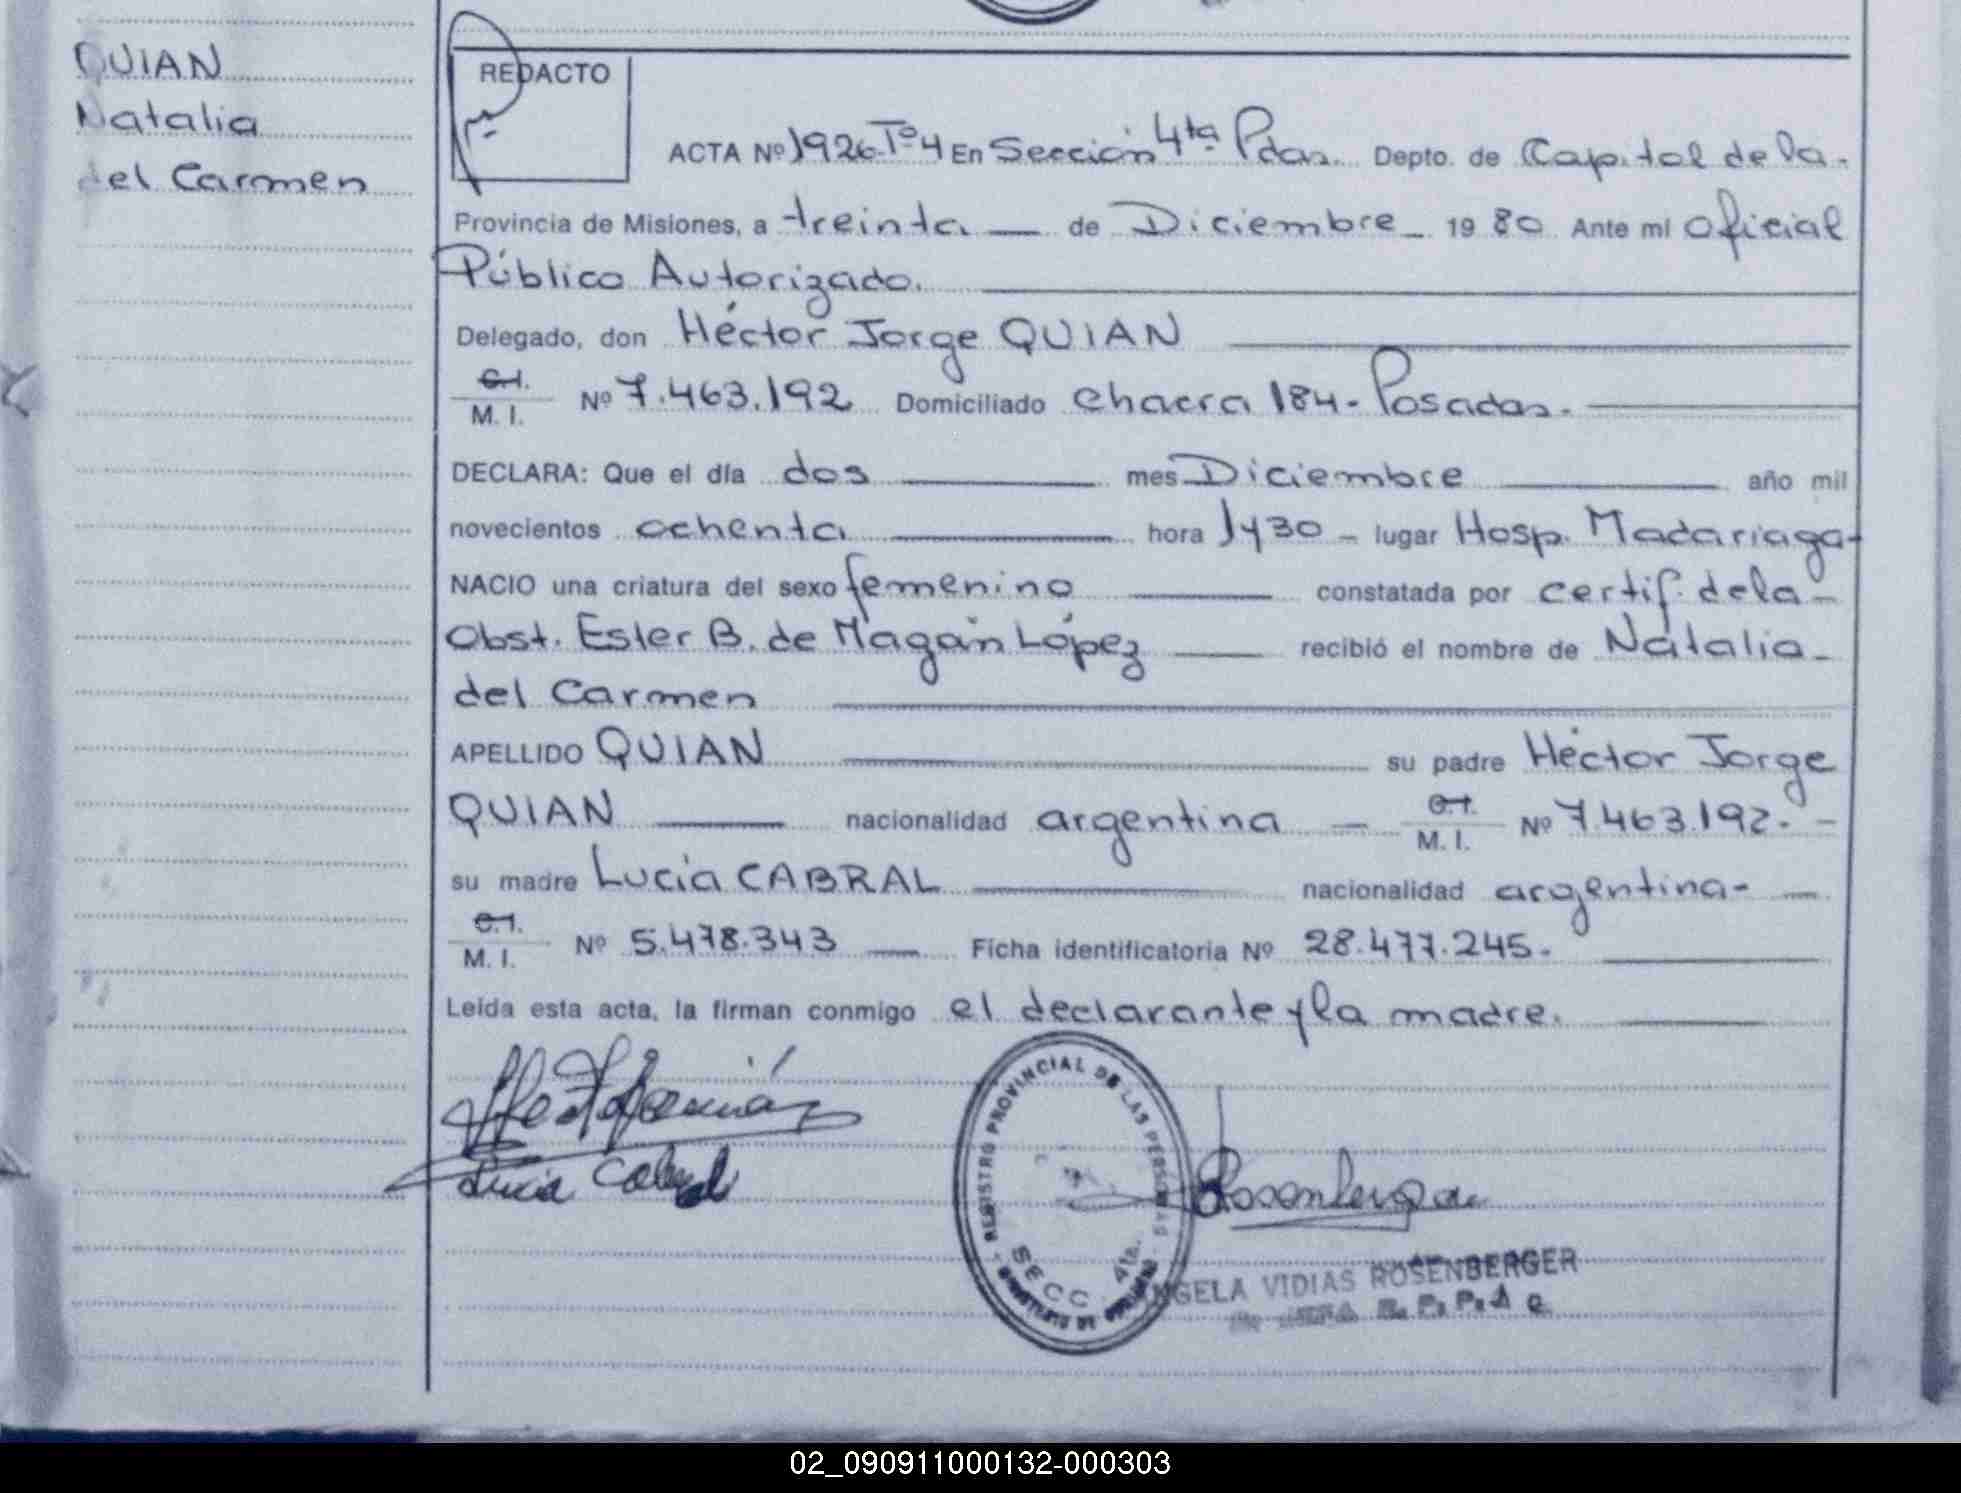 QUIAN
Natalia
del Carmen
REDACTO
ACTA Nº 1926 Tº 4 En Sección 4ta Pdas. Depto. de Capital de la-
Provincia de Misiones, a treinta — de Diciembre - 1980 Ante mi Oficial
Público Autorizado.
Delegado, don Héctor Jorge QUIAN
C.I.
M. I. Nº 7.463.192 Domiciliado Chacra 184 - Posadas.
DECLARA: Que el día dos mes Diciembre año mil
novecientos ochenta hora 1y30 - lugar Hosp. Madariaga-
NACIO una criatura del sexo femenino constatada por certif. de la-
Obst. Ester B. de Magán López recibió el nombre de Natalia-
del Carmen
APELLIDO QUIAN su padre Héctor Jorge
QUIAN nacionalidad argentina — C.I.
M. I. Nº 7.463.192.-
su madre Lucia CABRAL nacionalidad argentina-
C.I.
M. I. Nº 5.478.343 Ficha identificatoria Nº 28.477.245.
Leída esta acta, la firman conmigo el declarante y la madre.
Lucia Cabral
REGISTRO PROVINCIAL DE LAS PERSONAS
SECC. 4ta.
ANGELA VIDIAS ROSENBERGER
02_090911000132-000303